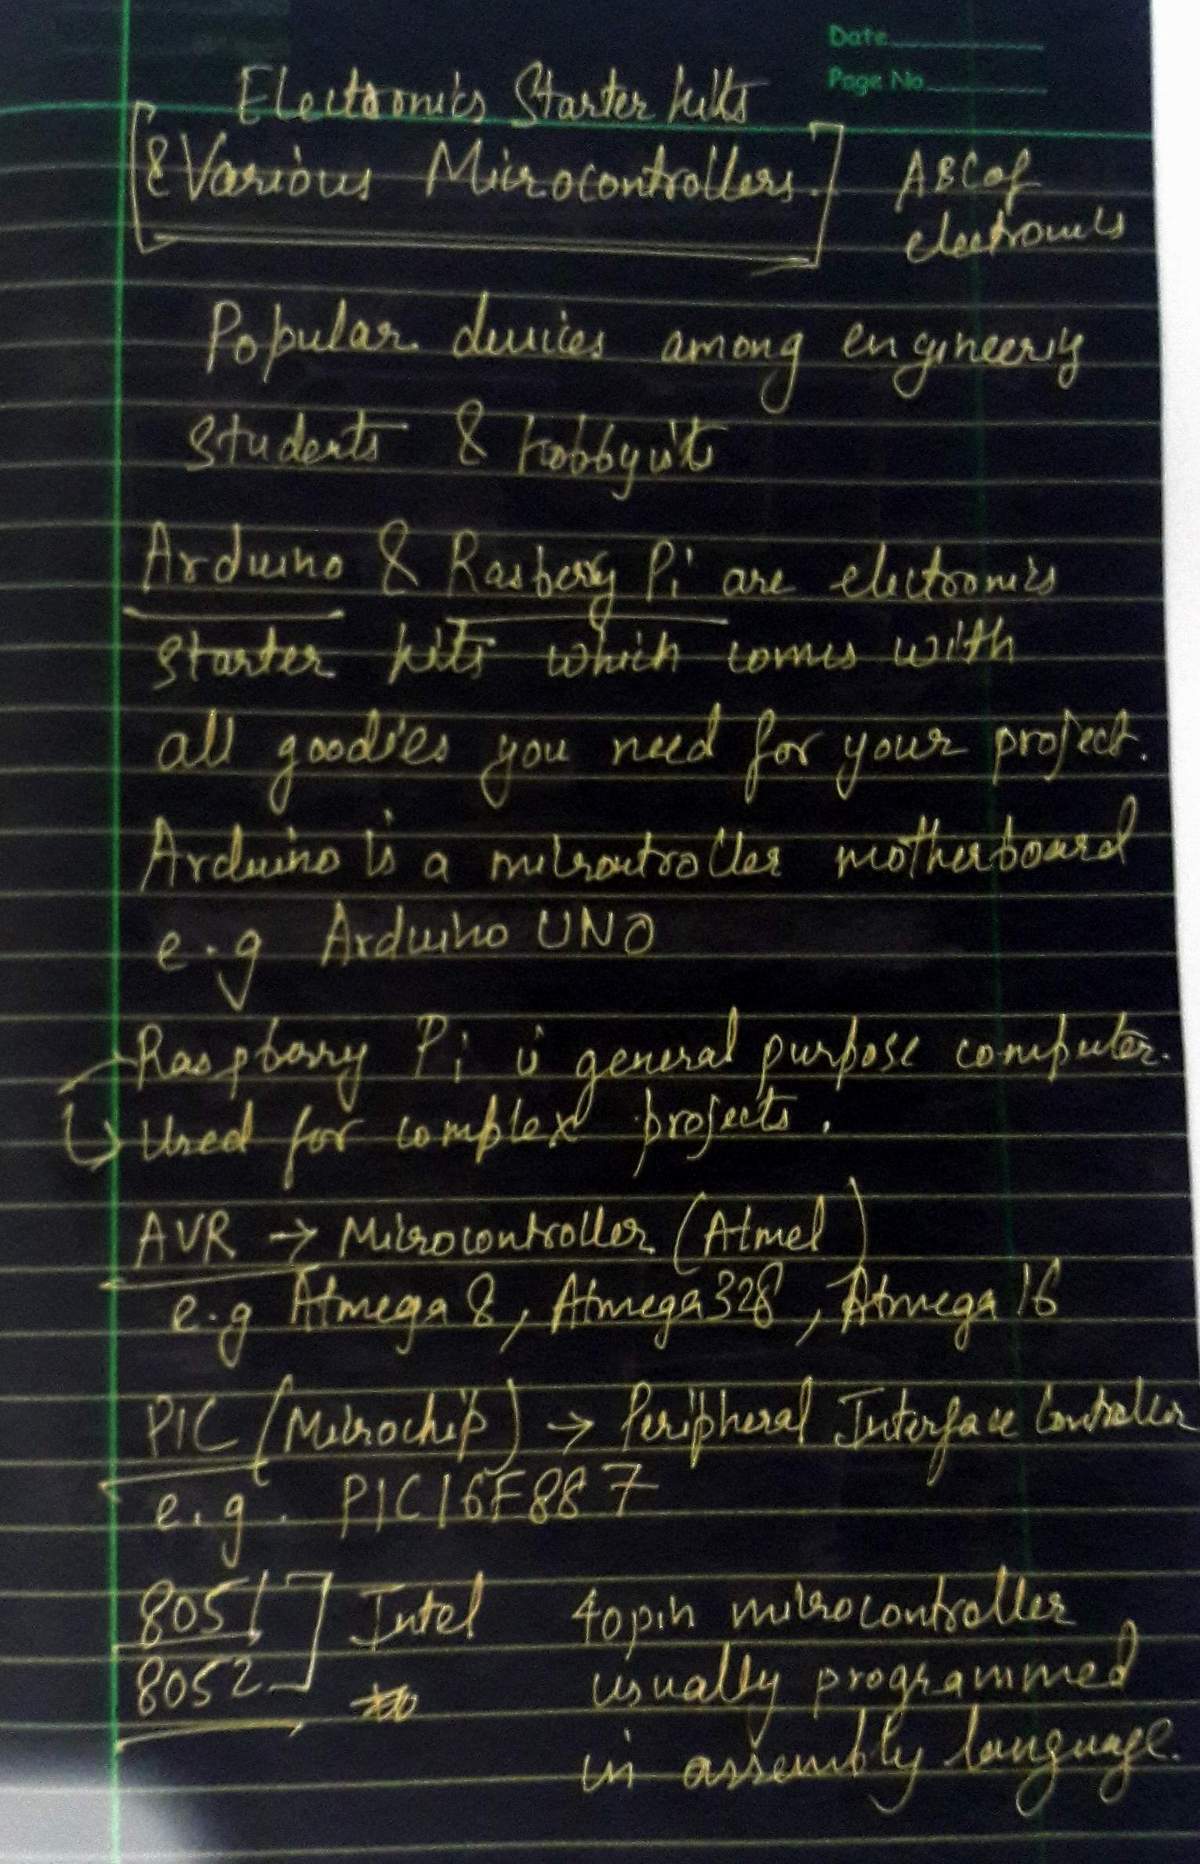 Date
Page No
Electronics Starter kits
& Various Microcontrollers.
ABC of
electronics
Popular devices among engineering
students & hobbyists
Arduino & Rasberry Pi are electronics
starter kits which comes with
all goodies you need for your project.
Arduino is a microntroller motherboard
e.g Arduino UNO
Raspberry Pi is general purpose computer.
Used for complex projects.
AVR → Microcontroller (Atmel)
e.g Atmega 8, Atmega 328, Atmega 16
PIC (Microchip) → Peripheral Interface Controller
e.g. PIC16F887
8051
8052
Intel
40 pin microcontroller
usually programmed
in assembly language.